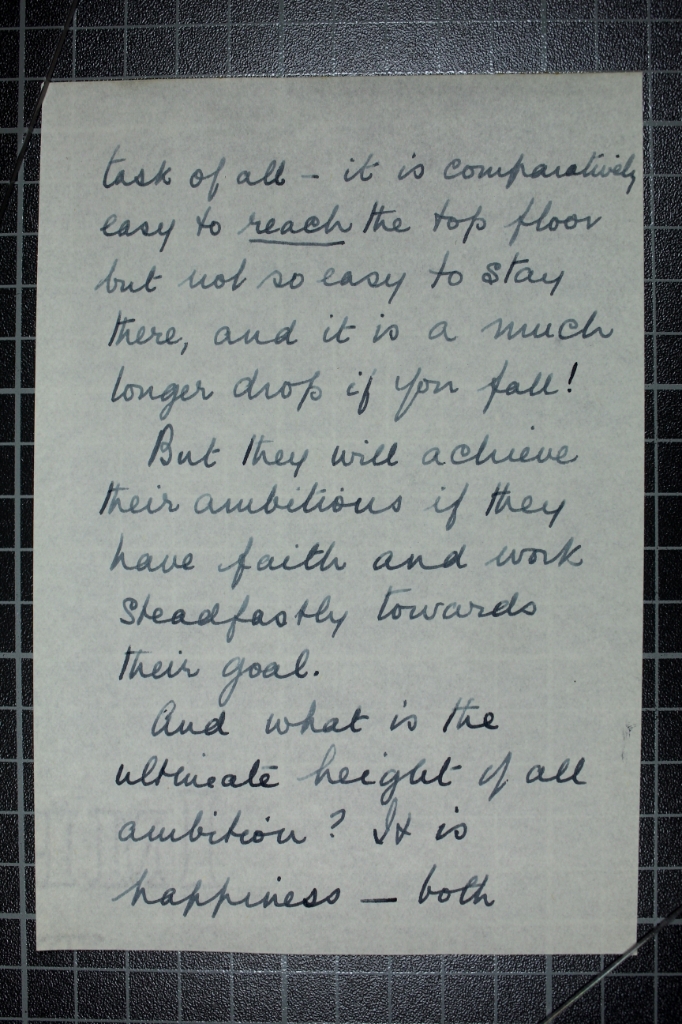 task of all - it is comparatively
easy to reach the top floor
but not so easy to stay
there, and it is a much
longer drop if you fall!
But they will achieve
their ambitions if they
have faith and work
steadfastly towards
their goal.
And what is the
ultimate height of all
ambition? It is
happiness — both